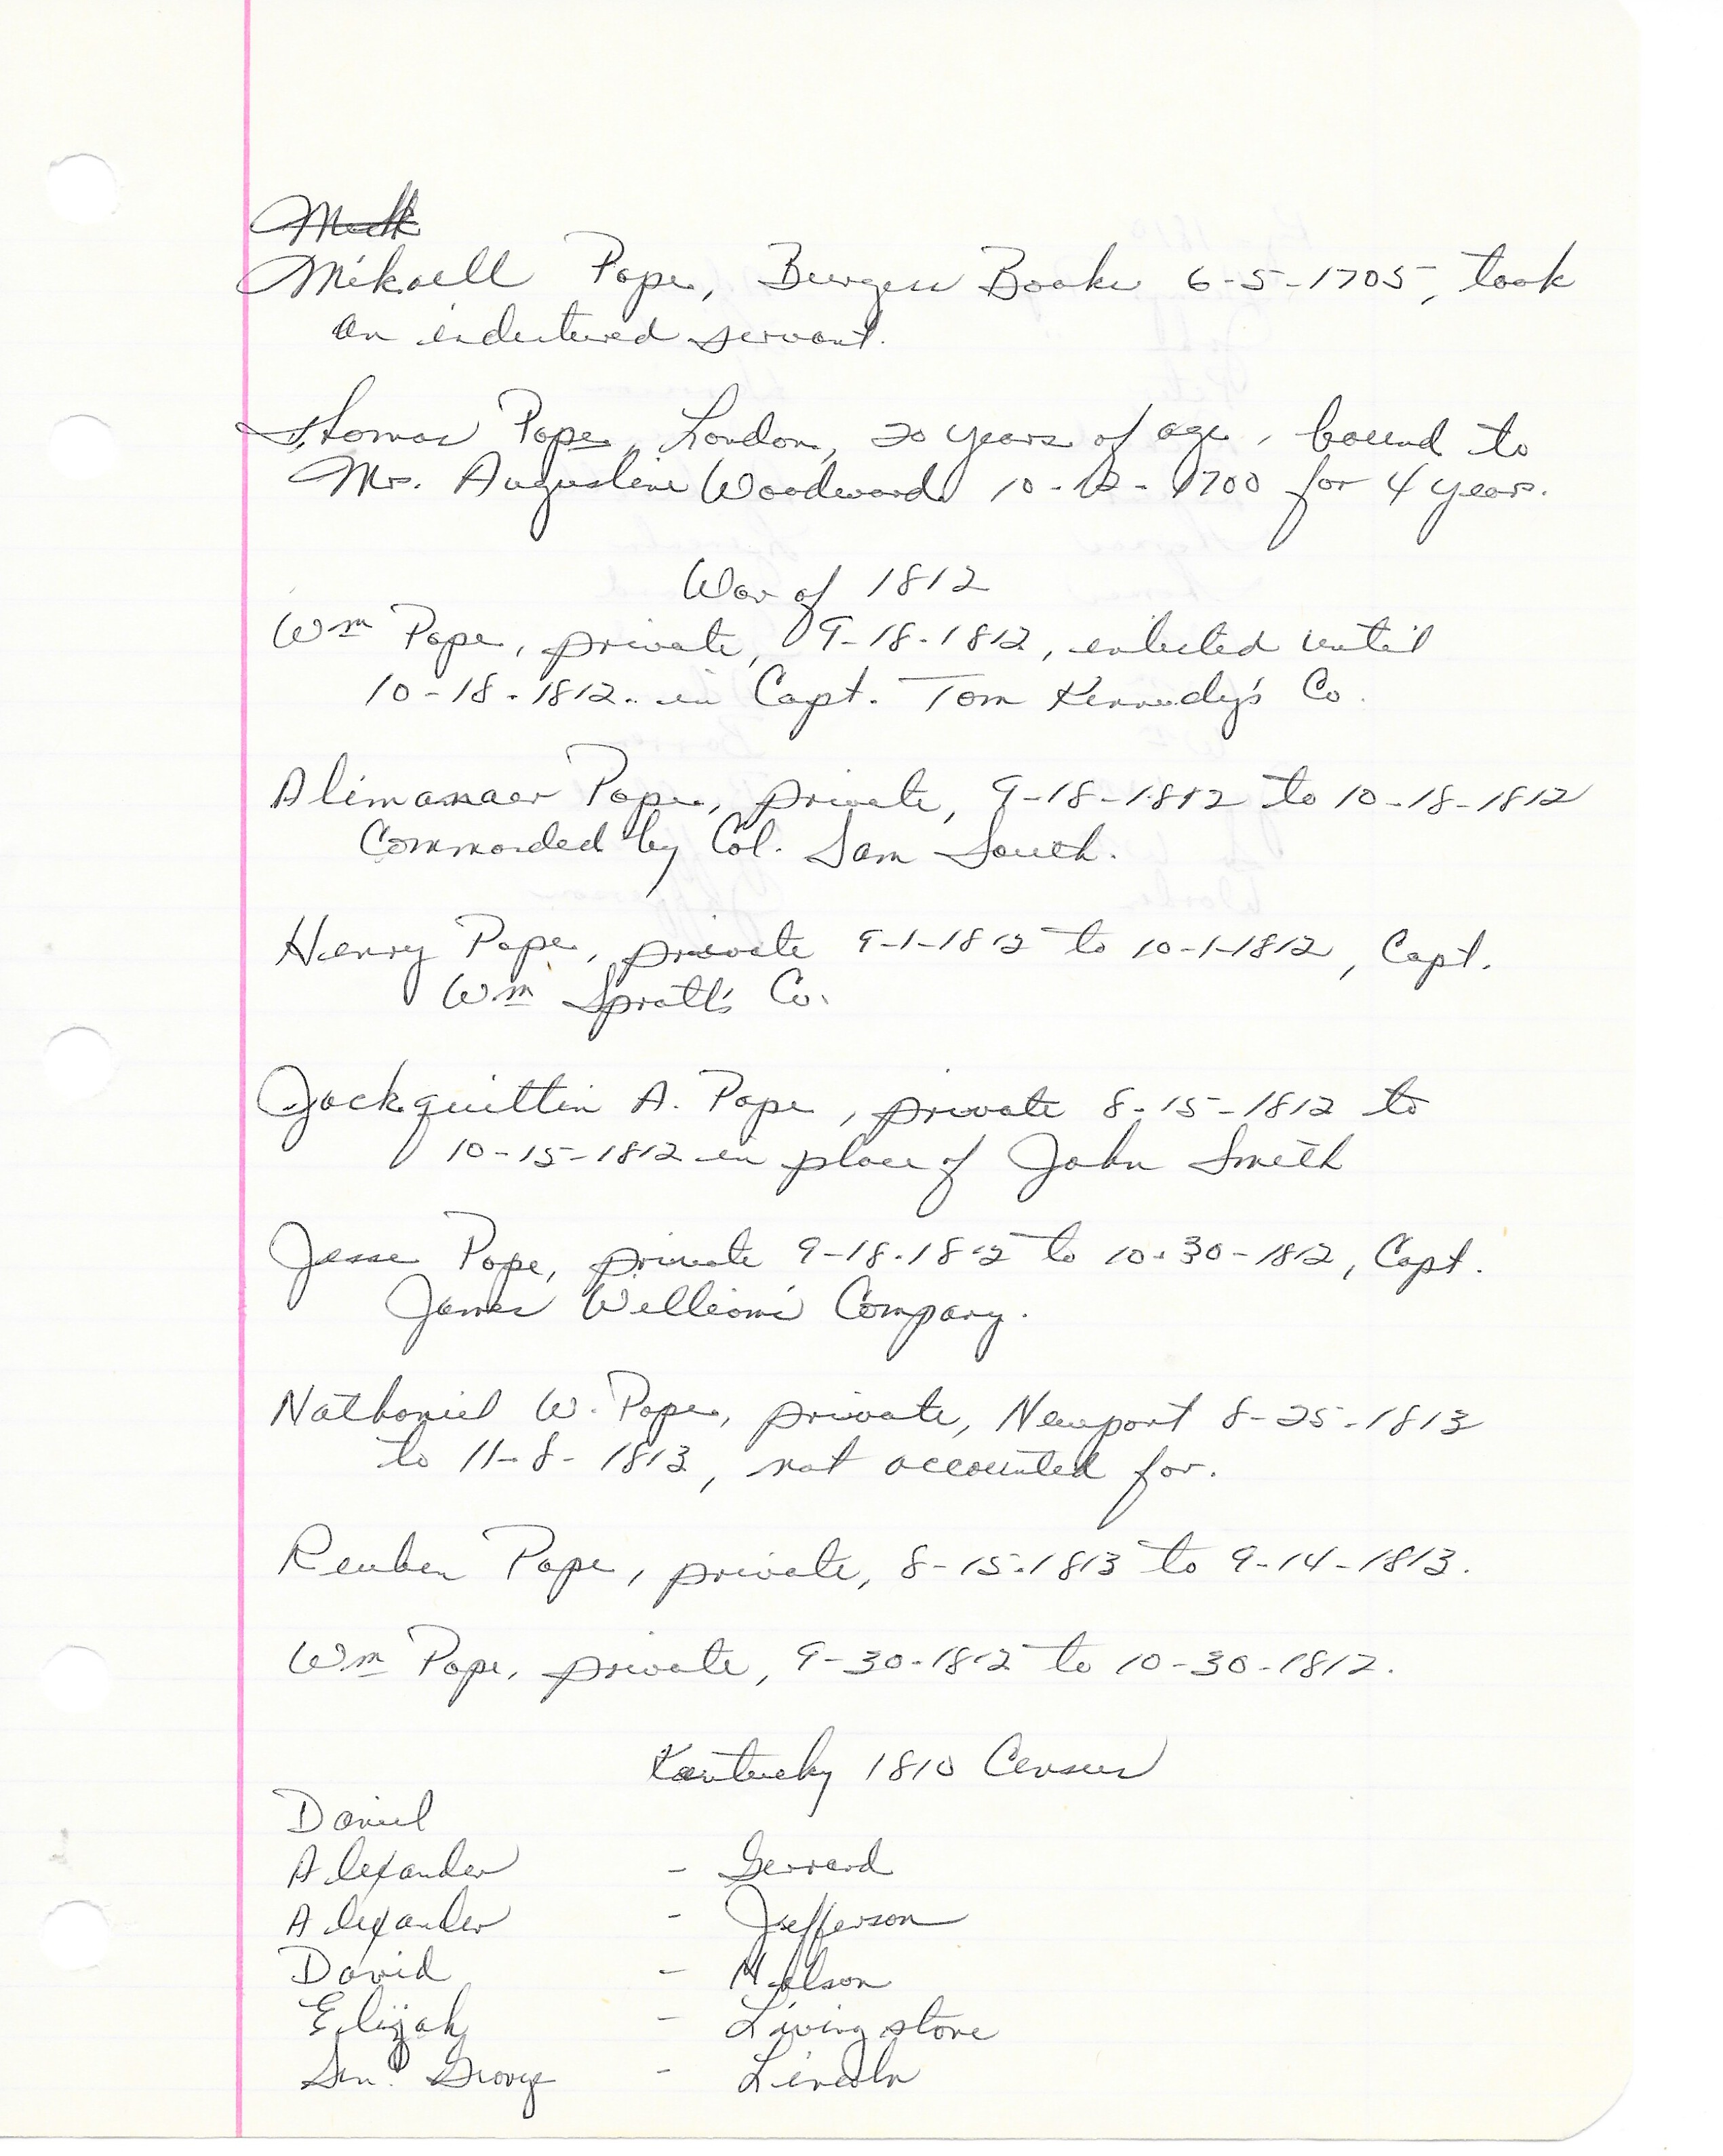 Mikaell Pope, Burgess Books 6-5-1705, took
an indentured servant.
Thomas Pope, London, 20 years of age, bound to
Mr. Augustine Woodward 10-12-1700 for 4 years.
War of 1812
Wm Pope, private, 9-18-1812, enlisted until
10-18-1812. in Capt. Tom Kennedy's Co.
Pope, private, 9-18-1812 to 10-18-1812
Commanded by Col. Sam South.
Henry Pope, private 9-1-1812 to 10-1-1812, Capt.
Wm Spratt's Co.
Jackquittin A. Pope, private 8-15-1812 to
10-15-1812 in place of John Smith
Jesse Pope, private 9-18-1812 to 10-30-1812, Capt.
James Williams' Company.
Nathaniel W. Pope, private, Newport 8-25-1813
to 11-8-1813, not accounted for.
Reuben Pope, private, 8-15-1813 to 9-14-1813.
Wm Pope, private, 9-30-1812 to 10-30-1812.
Kentucky 1810 Census
Daniel
Alexander - Gerrard
Alexander - Jefferson
David - Nelson
Elijah - Livingstone
George - Lincoln